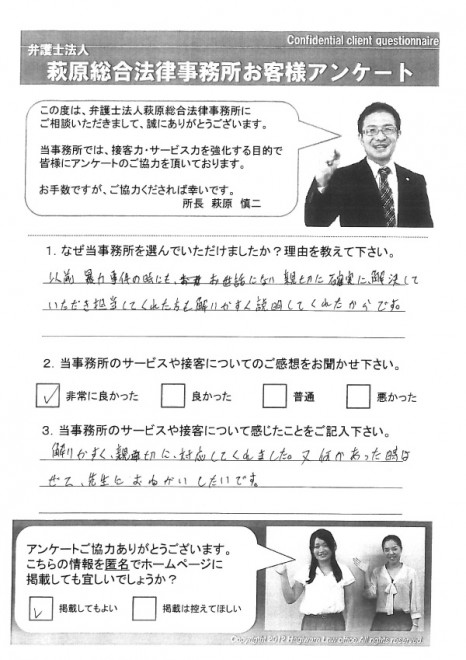 Confidential client questionnaire
弁護士法人
萩原総合法律事務所お客様アンケート
この度は、弁護士法人萩原総合法律事務所に
ご相談いただきまして、誠にありがとうございます。
当事務所では、接客力・サービス力を強化する目的で
皆様にアンケートのご協力を頂いております。
お手数ですが、ご協力くだされば幸いです。
所長 萩原 慎二
1. なぜ当事務所を選んでいただけましたか？理由を教えて下さい。
以前 暴力事件の時にも、お世話になり 親切に確実に、解決して
いただき担当してくれた方も解りやすく説明してくれたからです。
2. 当事務所のサービスや接客についてのご感想をお聞かせ下さい。
非常に良かった 良かった 普通 悪かった
3. 当事務所のサービスや接客について感じたことをご記入下さい。
解りやすく、親切に、対応してくれました。又 何かあった時は
ぜひ、先生に おねがいしたいです。
アンケートご協力ありがとうございます。
こちらの情報を匿名でホームページに
掲載しても宜しいでしょうか？
掲載してもよい 掲載は控えてほしい
Copyright 2012 Hagiwara Law office All rights reserved